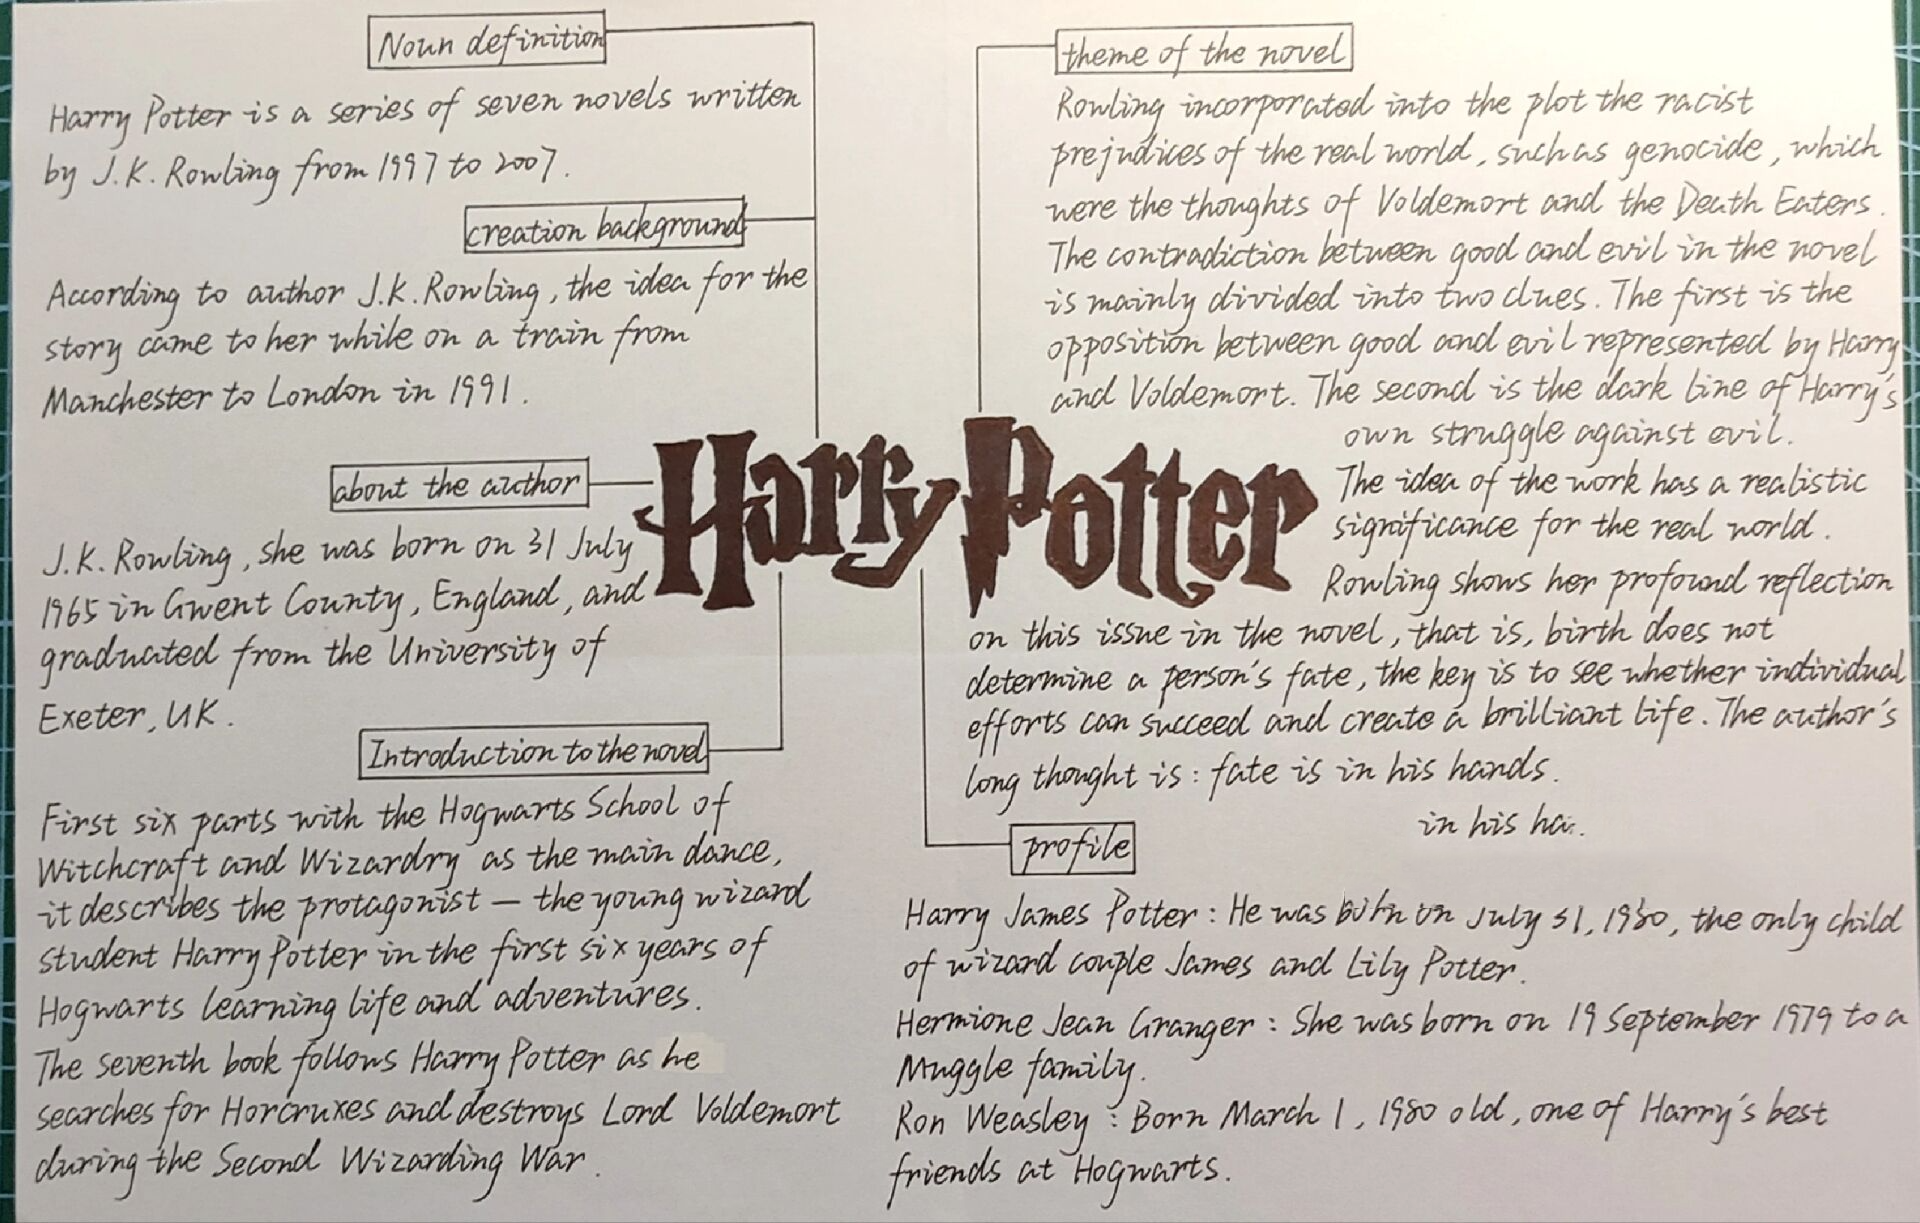 Noun definition
Harry Potter is a series of seven novels written
by J.K. Rowling from 1997 to 2007.
creation background
According to author J.K. Rowling, the idea for the
story came to her while on a train from
Manchester to London in 1991.
about the author
J.K. Rowling, she was born on 31 July
1965 in Gwent County, England, and
graduated from the University of
Exeter, UK.
Introduction to the novel
First six parts with the Hogwarts School of
Witchcraft and Wizardry as the main dance,
it describes the protagonist — the young wizard
student Harry Potter in the first six years of
Hogwarts learning life and adventures.
The seventh book follows Harry Potter as he
searches for Horcruxes and destroys Lord Voldemort
during the Second Wizarding War.
Harry Potter
theme of the novel
Rowling incorporated into the plot the racist
prejudices of the real world, such as genocide, which
were the thoughts of Voldemort and the Death Eaters.
The contradiction between good and evil in the novel
is mainly divided into two clues. The first is the
opposition between good and evil represented by Harry
and Voldemort. The second is the dark line of Harry's
own struggle against evil.
The idea of the work has a realistic
significance for the real world.
Rowling shows her profound reflection
on this issue in the novel, that is, birth does not
determine a person's fate, the key is to see whether individual
efforts can succeed and create a brilliant life. The author's
long thought is: fate is in his hands.
in his ha
profile
Harry James Potter: He was born on July 31, 1980, the only child
of wizard couple James and Lily Potter.
Hermione Jean Granger: She was born on 19 September 1979 to a
Muggle family.
Ron Weasley: Born March 1, 1980 old, one of Harry's best
friends at Hogwarts.